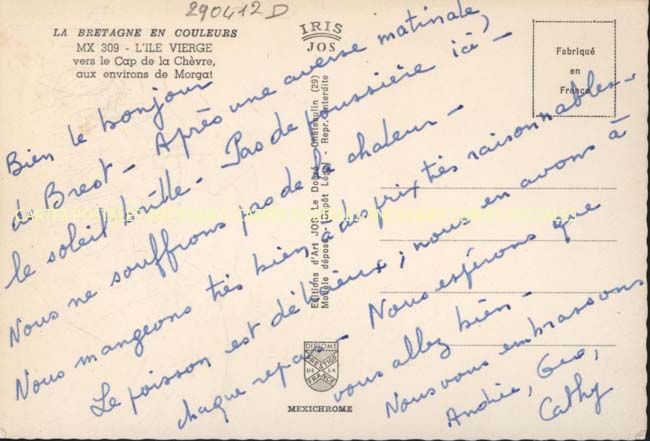 290412D
LA BRETAGNE EN COULEURS
MX 309 - L'ILE VIERGE
vers le Cap de la Chèvre,
aux environs de Morgat
IRIS
JOS
Fabriqué
en
France
Bien le bonjour
de Brest - Après une averse matinale,
le soleil brille - Pas de poussière ici -
Nous ne souffrons pas de la chaleur -
Nous mangeons très bien à des prix très raisonnables -
Le poisson est délicieux ; nous en avons à
chaque repas - Nous espérons que
vous allez bien -
Nous vous embrassons
Andrée, Geo,
Cathy
Editions d'Art JOS Le Doaré - Châteaulin (29)
Modèle déposé - Dépôt Légal - Repr. interdite
DIPLOME
PRESTIGE
DE LA
FRANCE
MEXICHROME